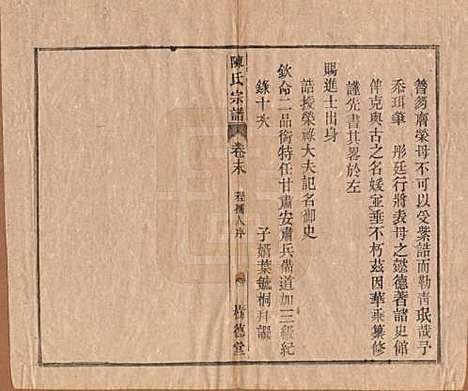 簪笏齊榮母不可以受紫誥而勒青珉哉予
忝珥筆 彤廷行將表母之懿德著諸史館
俾克與古之名媛並垂不朽茲因華乘纂修
謹先書其畧於左
賜進士出身
誥授榮祿大夫記名御史
欽命二品銜特任甘肅安肅兵備道加三級紀
錄十次
子婿葉毓桐拜譔
陳氏宗譜
卷末
程孺人序
德堂